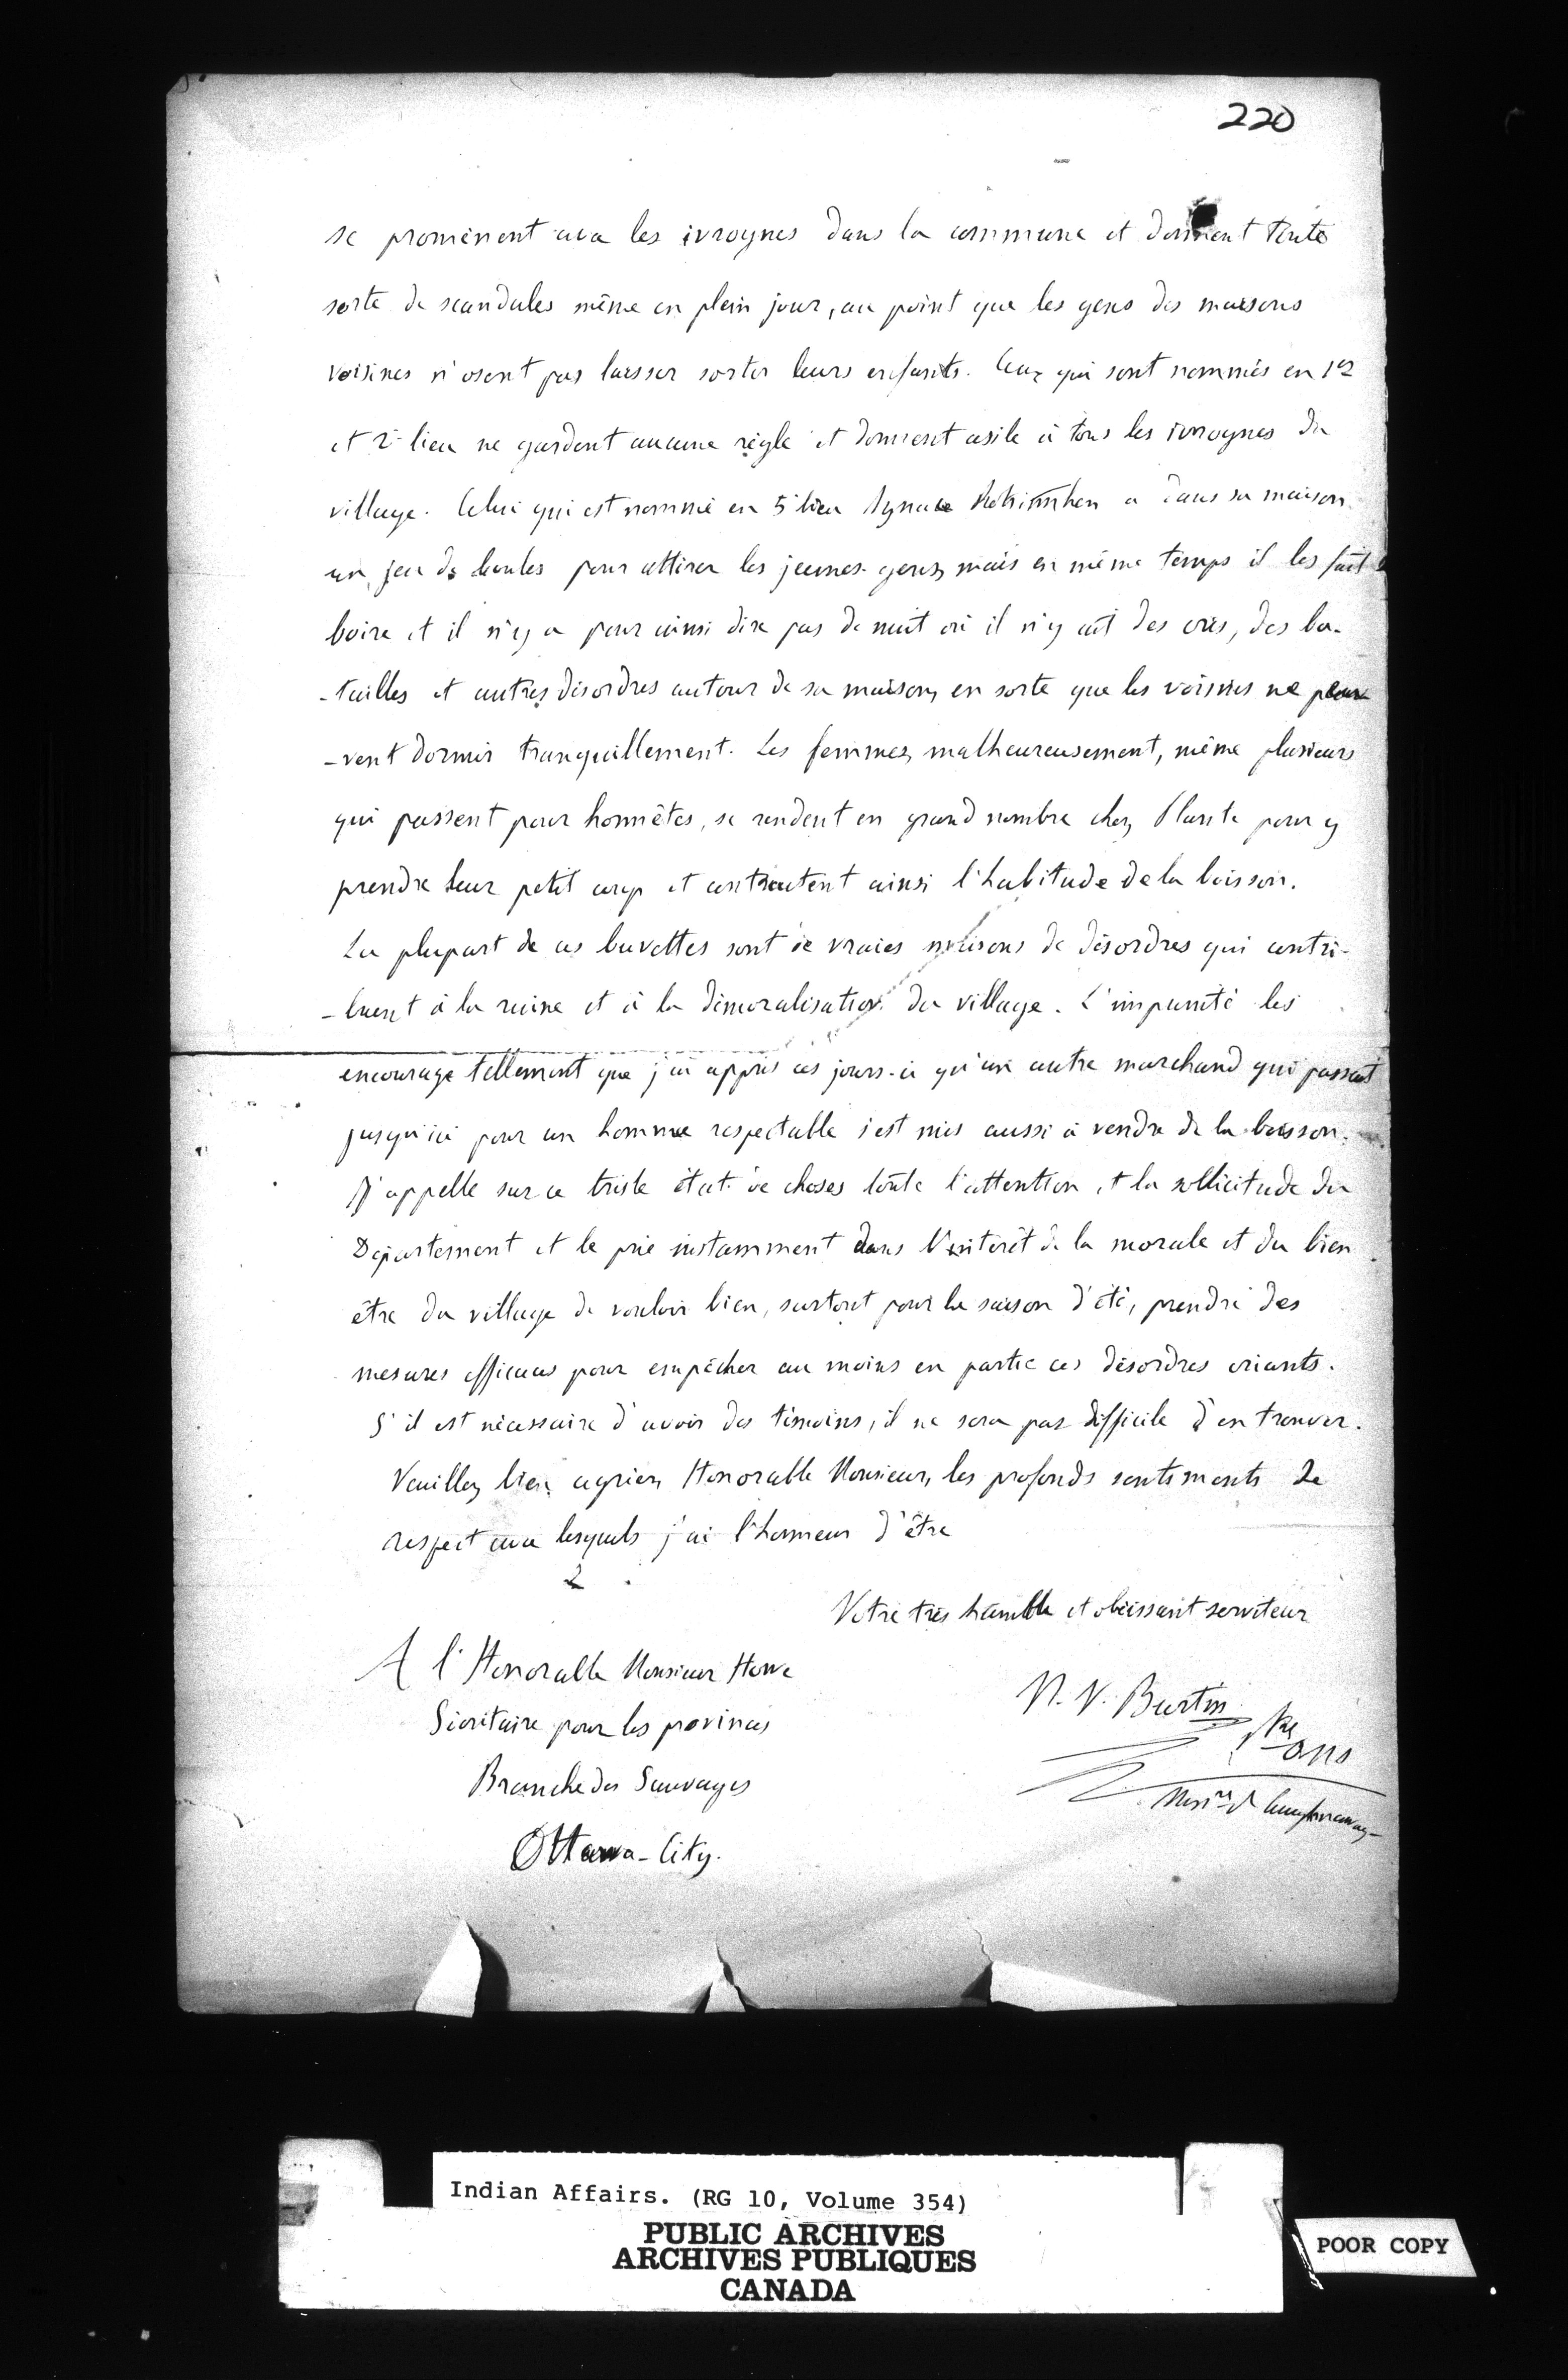 220
se promènent avec les ivrognes dans la commune et donnent toute
sorte de scandales même en plein jour, au point que les gens des maisons
voisines n'osent pas laisser sortir leurs enfants. Ceux qui sont nommés en 1er
et 2e lieu ne gardent aucune règle et donnent asile à tous les ivrognes du
village. Celui qui est nommé en 5e lieu Ignace a dans sa maison
un jeu de boules pour attirer les jeunes-gens, mais en même temps il les fait
boire et il n'y a pour ainsi dire pas de nuit où il n'y ait des cris, des ba-
-tailles et autres désordres autour de sa maison, en sorte que les voisins ne peu-
-vent dormir tranquillement. Les femmes, malheureusement, même plusieurs
qui passent pour honnêtes, se rendent en grand nombre chez Plante pour y
prendre leur petit coup et contractent ainsi l'habitude de la boisson.
La plupart de ces buvettes sont de vraies maisons de désordres qui contri-
-buent à la ruine et à la démoralisation du village. L'impunité les
encourage tellement que j'ai appris ces jours-ci qu'un autre marchand qui passait
jusqu'ici pour un homme respectable s'est mis aussi à vendre de la boisson.
J'appelle sur ce triste état de choses toute l'attention et la sollicitude du
Département et le prie instamment dans l'intérêt de la morale et du bien
être du village de vouloir bien, surtout pour la saison d'été, prendre des
mesures efficaces pour empêcher au moins en partie ces désordres criants.
S'il est nécessaire d'avoir des témoins, il ne sera pas difficile d'en trouver.
Veuillez bien agréer, Honorable Monsieur, les profonds sentiments de
respect avec lesquels j'ai l'honneur d'être
Votre très humble et obéissant serviteur
A l'Honorable Monsieur Howe
Sécrétaire pour les provinces
Branche des Sauvages
Ottawa-City.
N. V. Burtin
Ptre
OMI
Miss.re de Caughnawaga
Indian Affairs. (RG 10, Volume 354)
PUBLIC ARCHIVES
ARCHIVES PUBLIQUES
CANADA
POOR COPY